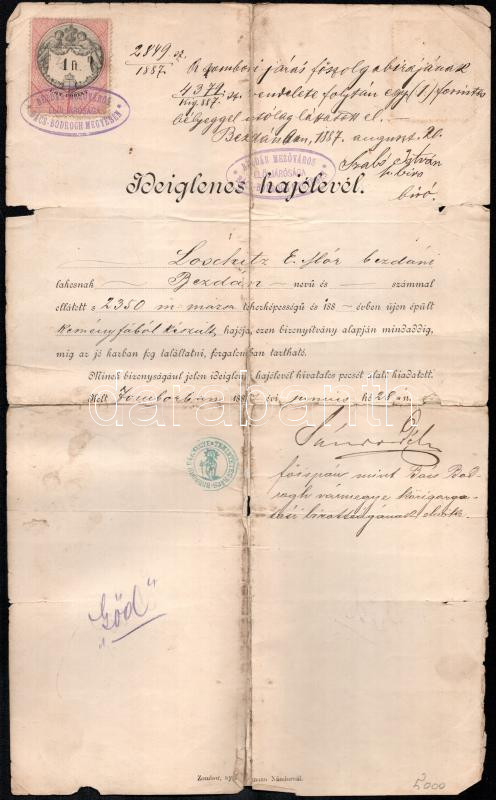 2849 sz.
1887.
1 ft.
BEZDÁN MEZŐVÁROS
ELŐLJÁRÓSÁGA
BÁCS-BODROGH MEGYÉBEN
A zombori járás főszolgabirájának
4371
887. sz. rendelete folytán egy (1) forintos
bélyeggel utólag láttatott el.
Bezdánban, 1887. august.
Szabó István
biró
BEZDÁN MEZŐVÁROS
ELŐLJÁRÓSÁGA
Ideiglenes hajólevél.
Loschitz E. Mór bezdáni
lakosnak Bezdán nevü és számmal
ellátott s 2350 m. mázsa teherképességü és 188 évben újen épült
keményfából készült hajója, ezen bizonyítvány alapján mindaddig,
mig az jó karban fog találtatni, forgalomban tartható.
Minek bizonyságául jelen ideiglenes hajólevél hivatalos pecsét alatt kiadatott.
Kelt Zomborban 188 évi junius hó 28-án.
főispán mint Bács-Bod-
rogh vármegye közigazga-
tási bizottságának elnöke.
"Göd"
Zombor, Nándornál.
5000
darabanth